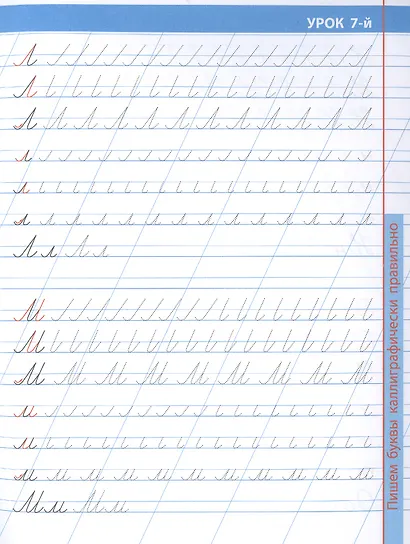 УРОК 7-й
Л
Л
Л Л Л Л Л Л Л Л Л Л Л Л
л
л
л л л л л л л л л л л л л л л л
Л л Л л
М
М
М М М М М М М М
м
м
м м м м м м м м м м
М м М м
Пишем буквы каллиграфически правильно